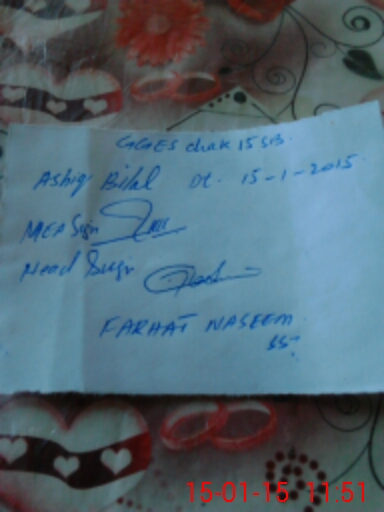 GGES chak 15 SB.
Ashiq Bilal Dt. 15-1-2015
MEA Sign
Head Sign
FARHAT NASEEM
15-01-15 11:51